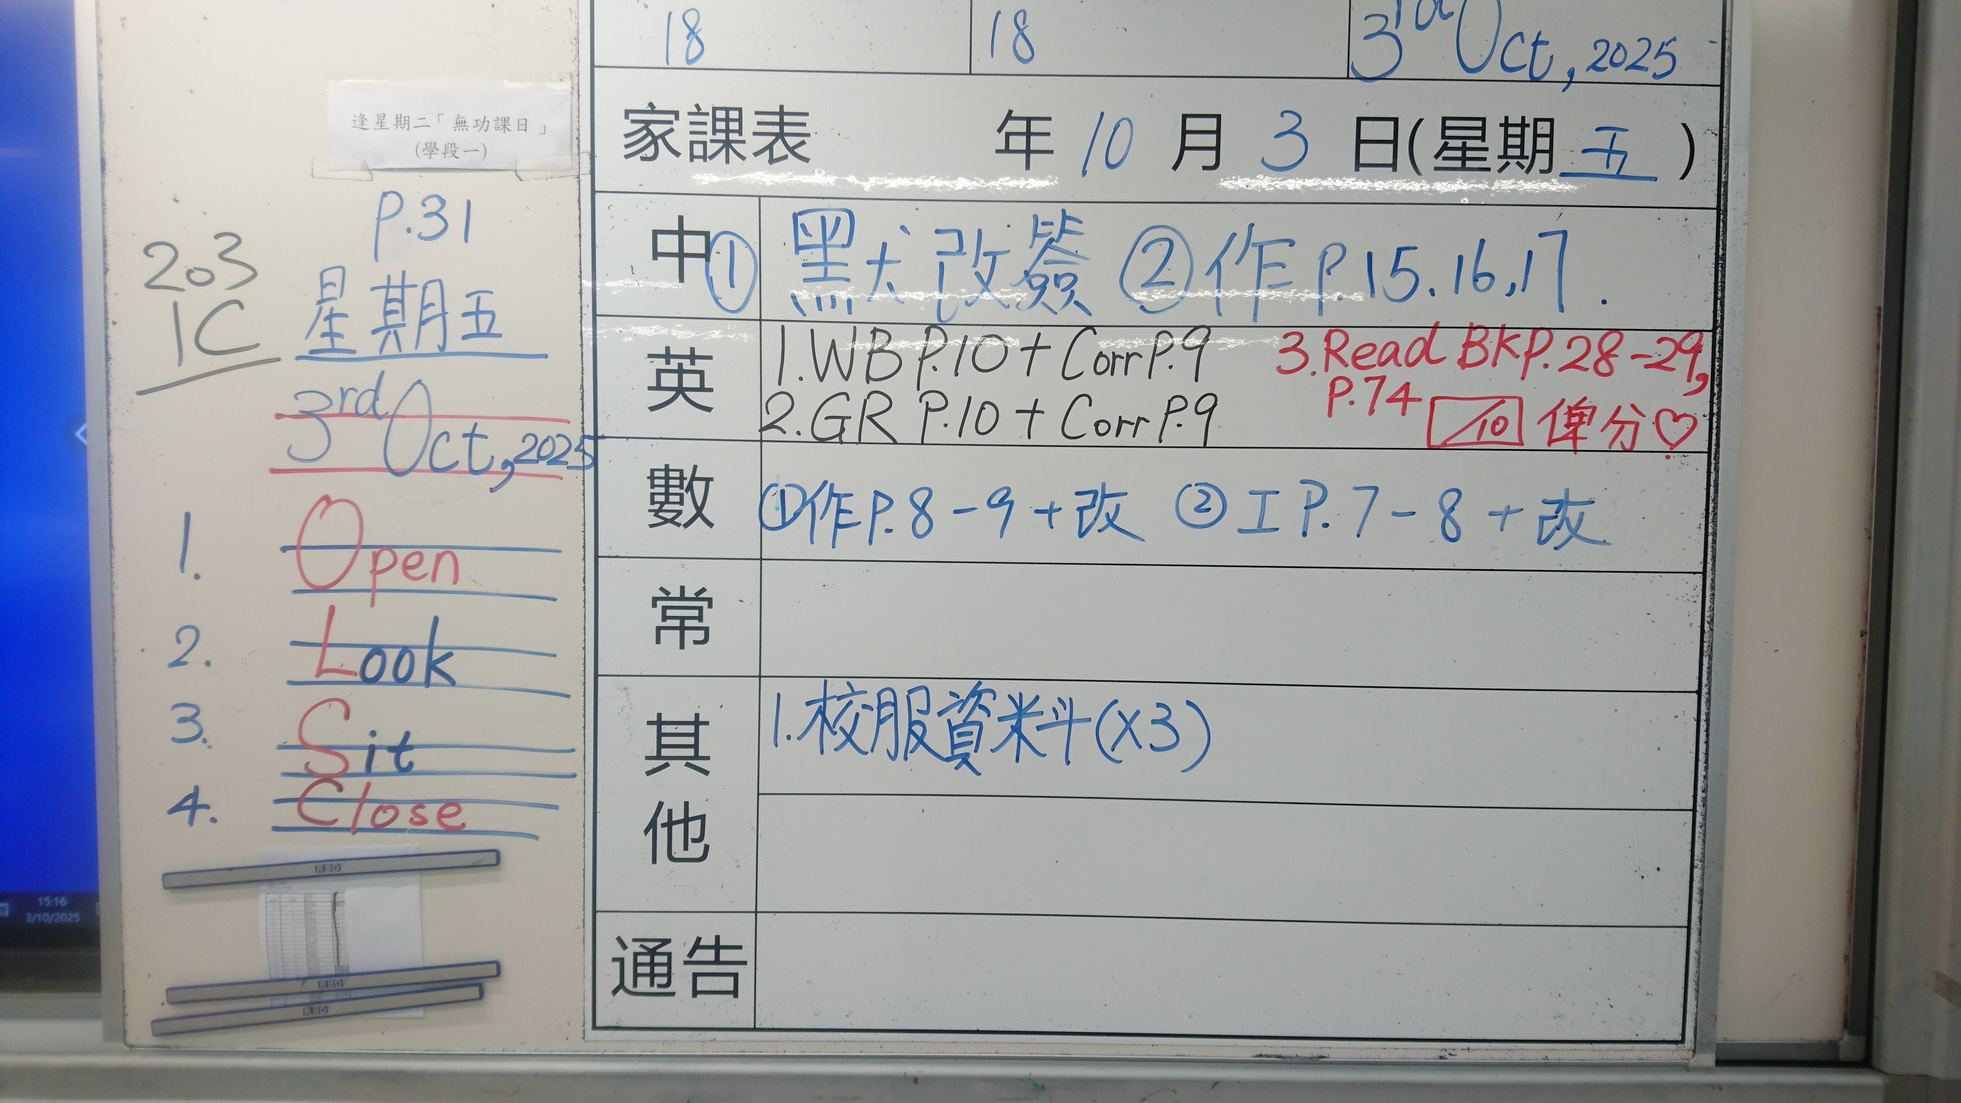 18 18 3rd Oct, 2025
家課表 年 10 月 3 日(星期 五 )
逢星期二「無功課日」
(學段一)
P.31
203
1C
星期五
3rd Oct, 2025
1. Open
2. Look
3. Sit
4. Close
中 ① 默改簽 ② 作 P.15.16,17.
英 1. WB P.10 + Corr P.9
2. GR P.10 + Corr P.9
3. Read BK P.28-29,
P.74 /10 俾分♡
數 ① 作 P.8-9+改 ② 工 P.7-8+改
常
其他 1. 校服資料(x3)
通告
RBD
RBD
RBD
15:16
3/10/2025